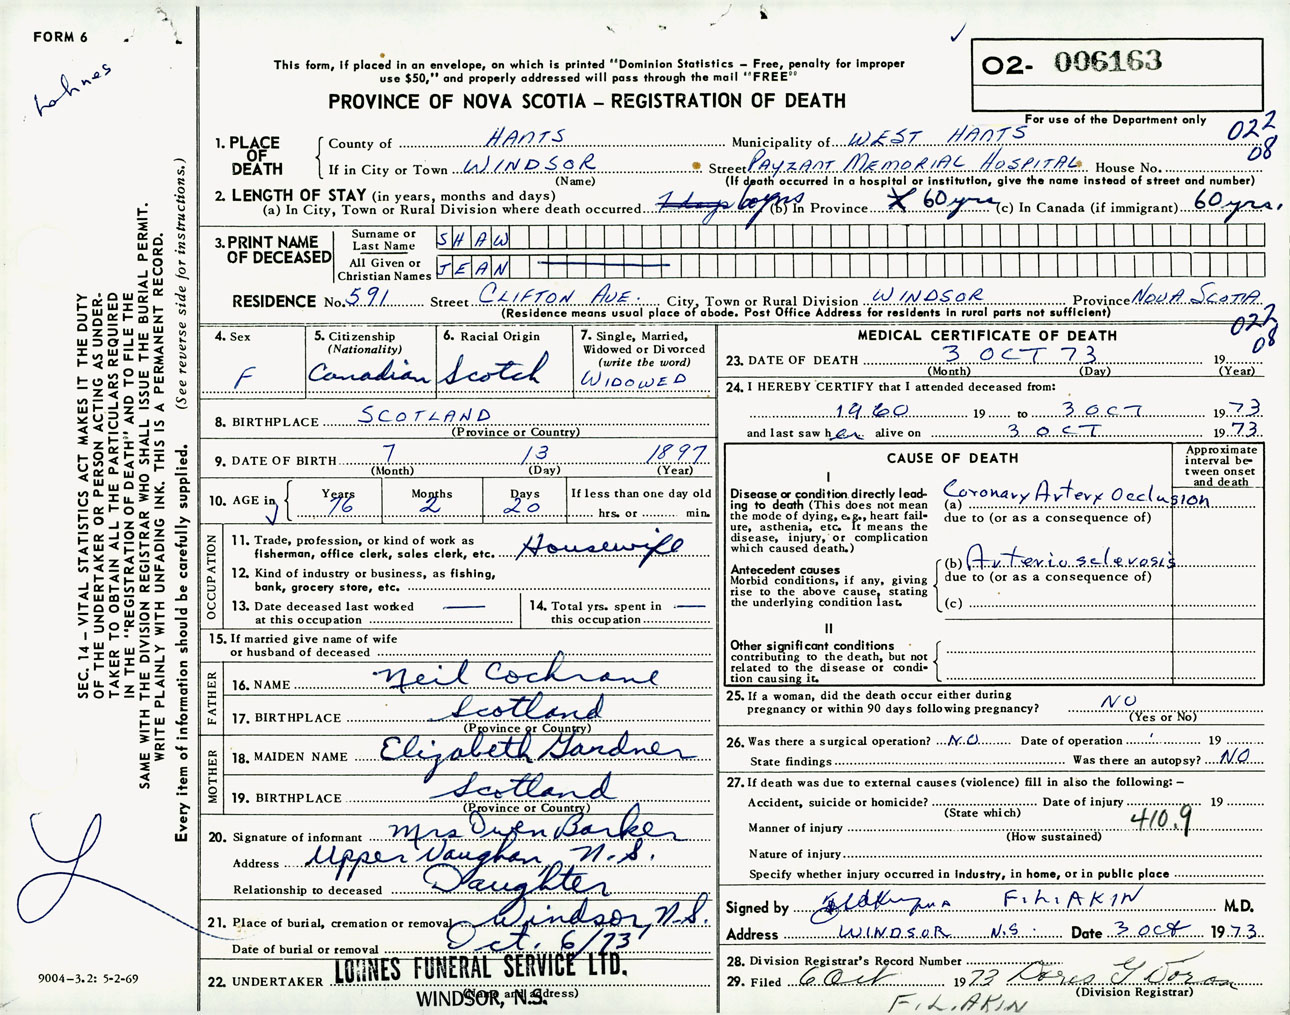 FORM 6
Lohnes
This form, if placed in an envelope, on which is printed "Dominion Statistics – Free, penalty for improper
use $50," and properly addressed will pass through the mail "FREE"
PROVINCE OF NOVA SCOTIA – REGISTRATION OF DEATH
O2- 006163
For use of the Department only
022
08
1. PLACE OF DEATH
County of HANTS Municipality of WEST HANTS
If in City or Town WINDSOR Street PAYZANT MEMORIAL HOSPITAL House No.
(Name) (If death occurred in a hospital or institution, give the name instead of street and number)
2. LENGTH OF STAY (in years, months and days)
(a) In City, Town or Rural Division where death occurred 60 yrs (b) In Province 60 yrs (c) In Canada (if immigrant) 60 yrs.
3. PRINT NAME OF DECEASED
Surname or Last Name SHAW
All Given or Christian Names JEAN
RESIDENCE No. 591 Street CLIFTON AVE. City, Town or Rural Division WINDSOR Province NOVA SCOTIA
(Residence means usual place of abode. Post Office Address for residents in rural parts not sufficient)
022
08
4. Sex
F
5. Citizenship
(Nationality)
Canadian
6. Racial Origin
Scotch
7. Single, Married,
Widowed or Divorced
(write the word)
WIDOWED
8. BIRTHPLACE SCOTLAND
(Province or Country)
9. DATE OF BIRTH 7 13 1897
(Month) (Day) (Year)
10. AGE in
Years Months Days If less than one day old
76 2 20 hrs. or min.
OCCUPATION
11. Trade, profession, or kind of work as
fisherman, office clerk, sales clerk, etc. Housewife
12. Kind of industry or business, as fishing,
bank, grocery store, etc.
13. Date deceased last worked
at this occupation
14. Total yrs. spent in
this occupation
15. If married give name of wife
or husband of deceased
FATHER
16. NAME Neil Cochrane
17. BIRTHPLACE Scotland
(Province or Country)
MOTHER
18. MAIDEN NAME Elizabeth Gardner
19. BIRTHPLACE Scotland
(Province or Country)
20. Signature of informant Mrs Owen Barker
Address Upper Vaughan, N.S.
Relationship to deceased Daughter
21. Place of burial, cremation or removal Windsor, N.S.
Date of burial or removal Oct. 6/73
22. UNDERTAKER LOHNES FUNERAL SERVICE LTD.
(Name and address)
WINDSOR, N.S.
MEDICAL CERTIFICATE OF DEATH
23. DATE OF DEATH 3 OCT 73 19
(Month) (Day) (Year)
24. I HEREBY CERTIFY that I attended deceased from:
1960 19 to 3 OCT 1973
and last saw her alive on 3 OCT 1973
CAUSE OF DEATH
Approximate
interval be-
tween onset
and death
I
Disease or condition directly lead-
ing to death (This does not mean
the mode of dying, e.g., heart fail-
ure, asthenia, etc. It means the
disease, injury, or complication
which caused death.)
(a) Coronary Artery Occlusion
due to (or as a consequence of)
Antecedent causes
Morbid conditions, if any, giving
rise to the above cause, stating
the underlying condition last.
(b) Arteriosclerosis
due to (or as a consequence of)
(c)
II
Other significant conditions
contributing to the death, but not
related to the disease or condi-
tion causing it.
25. If a woman, did the death occur either during
pregnancy or within 90 days following pregnancy? NO
(Yes or No)
26. Was there a surgical operation? NO Date of operation 19
State findings Was there an autopsy? NO
27. If death was due to external causes (violence) fill in also the following: –
Accident, suicide or homicide? Date of injury 19
(State which)
Manner of injury 410.9
(How sustained)
Nature of injury
Specify whether injury occurred in industry, in home, or in public place
Signed by F.L. AKIN M.D.
Address WINDSOR N.S. Date 3 Oct 1973
28. Division Registrar's Record Number
29. Filed 6 Oct 1973 Doris Y Doran
(Division Registrar)
F.L. AKIN
SEC. 14 – VITAL STATISTICS ACT MAKES IT THE DUTY
OF THE UNDERTAKER OR PERSON ACTING AS UNDER-
TAKER TO OBTAIN ALL THE PARTICULARS REQUIRED
IN THE "REGISTRATION OF DEATH" AND TO FILE THE
SAME WITH THE DIVISION REGISTRAR WHO SHALL ISSUE THE BURIAL PERMIT.
WRITE PLAINLY WITH UNFADING INK. THIS IS A PERMANENT RECORD.
Every item of information should be carefully supplied. (See reverse side for instructions.)
9004-3.2: 5-2-69